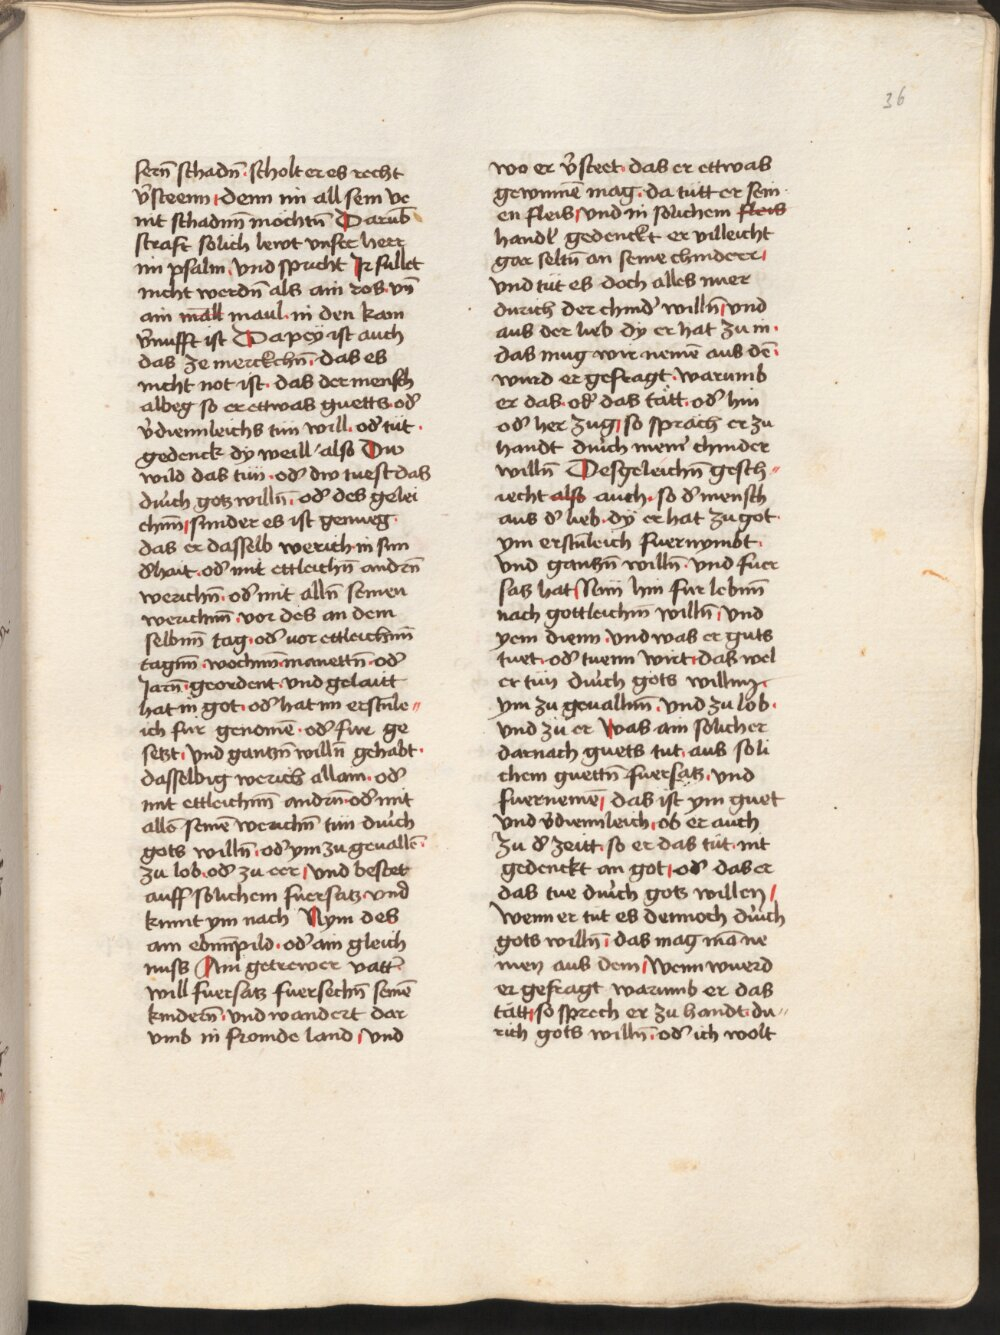 36
sern̄ schadn̄ · scholt er es recht
v̉steenn · denn im all sein ve
nit schadnn̄ mochtn̄ Darub̄
straft solich lewt vnser herr
im psalm · vnd spricht Ir sullet
nicht werdn̄ als ain ros · vn̄
ain māll maul · in den kain
v̉nufft ist Dapey ist auch
das ze merckchn̄ · das es
nicht not ist · das der mensch
albeg so er ettwas guetts · od̉
v̉diennleichs tun will · od̉ tut ·
gedenck dy weill · also Du
wild das tun · od̉ dw tuest das
durch gotz willn̄ · od̉ des gelei
chnn̄ sunder es ist genueg ·
das er dasselb werich in sun
d̉hait · od̉ mit ettleichn̄ andrn̄
werichn̄ · od̉ mit alln̄ seinen
werichnn̄ · vor des an dem
selbnn̄ tag · od̉ vor ettleichnn̄
tagnn̄ · wochnn̄ · manettn̄ · od̉
Jarn̄ · geordent · vnd gelaitt
hat in got · od̉ hat im erstnle〃
ich fur genomē · od̉ fur ge
setzt · vnd gantzn̄ willn̄ gehabt ·
dasselbig werich allain · od̉
mit ettleichnn̄ andrn̄ · od̉ mit
alln̄ seinē werichn̄ tun durch
gots willn̄ · od̉ ym zu geuallē ·
zu lob · od̉ zu eer · vnd bestet
auff solichem fuersatz · vnd
kumt ym nach Nym des
ain ebnnpild · od̉ ain gleich
nuss Ain getrewer vatt̉
will fuersatz fuersechn̄ seinē
kindern̄ · vnd wandert dar
vmb in fromde land · vnd
wo er v̉steet · das er ettwas
gewinnē mag · da tutt er sein ·
en fleis · vnd in solichem fleis
handl gedenckt er villeicht
gar seltn̄ an seine chinderr
vnd tut es doch alles nuer
durich der chind̉ willn̄ · vnd
aus der lieb dy er hat zu in ·
das mug wir nemē aus dē ·
wurd er gefragt · warumb
er das · od̉ das tätt · od̉ hin
od̉ her zug · so sprach er zu
handt durch meiner chinder
willn̄ Desgeleichn̄ gesch〃
iecht also auch · so d̉ mensch
aus d̉ lieb · dy er hat zu got ·
ym erstnleich fuernymbt ·
vnd gantzn̄ willn̄ · vnd fuer
satz hat Nun hin fur lebnn̄
nach gottleichm̄ willn̄ · vnd
yem dienn · vnd was er guts
tuet · od̉ tuenn wirt · das wel
er tun durch gots willnn ·
ym zu geuallnn̄ · vnd zu lob ·
vnd zu er Was ain solicher
darnach guets tut · aus soli
chem guettn̄ fuersatz · vnd
fuernemē · das ist ym guet
vnd v̉dienleich · ob er auch
zu d̉ zeitt · so er das tut · nit
gedenckt an got · od̉ das er
das tue durch gotz willen ·
Wenn er tut es dennoch durch
gots willn̄ · das mag mā ne
men aus dem · Wenn wuerd
er gefragt warumb er das
tätt · so sprech er zu handt · du〃
rich gots willn̄ · od̉ ich wolt